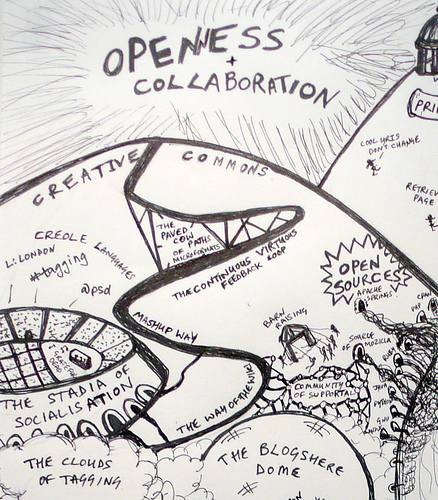 OPENNESS
+
COLLABORATION
PRI
COOL URIS
DON'T CHANGE
CREATIVE COMMONS
RETRIEV
PAGE
CREOLE LANGUAGES
L:LONDON
#tagging
@psd
THE
PAVED
COW
PATHS
OF
MICROFORMATS
THE CONTINUOUS VIRTUOUS
FEEDBACK LOOP
OPEN
SOURCES
APACHE
SPRINGS
CPAN
PHP
BARN
RAISING
MASHUP WAY
SOURCE
OF
MOZILLA
RUBY
JAVA
PYTHON
GNU
COMMUNITY
OF SUPPORTAL
THE STADIA OF
SOCIALISATION
THE WAY OF THE WIKI
THE CLOUDS
OF TAGGING
THE BLOGSHERE
DOME